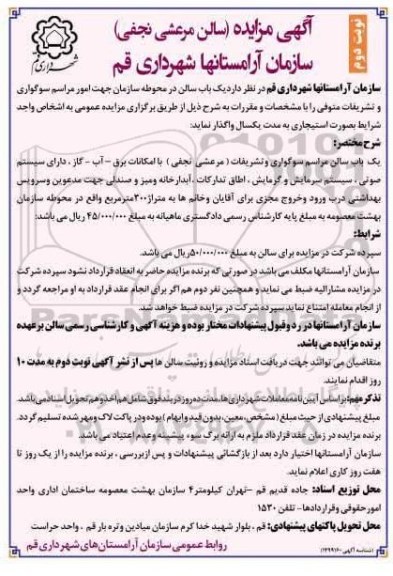 نوبت دوم
آگهی مزایده (سالن مرعشی نجفی)
سازمان آرامستانها شهرداری قم
شهرداری قم
سازمان آرامستانها شهرداری قم در نظر دارد یک باب سالن در محوطه سازمان جهت امور مراسم سوگواری
و تشریفات متوفی را با مشخصات و مقررات به شرح ذیل از طریق برگزاری مزایده عمومی به اشخاص واجد
شرایط بصورت استیجاری به مدت یکسال واگذار نماید:
شرح مختصر:
یک باب سالن مراسم سوگواری و تشریفات ( مرعشی نجفی ) با امکانات برق – آب - گاز ، دارای سیستم
صوتی ، سیستم سرمایش و گرمایش ، اطاق تدارکات ، آبدارخانه ومیز و صندلی جهت مدعوین وسرویس
بهداشتی درب ورود وخروج مجزی برای آقایان وخانم ها به متراژ ۳۰۰مترمربع واقع در محوطه سازمان
بهشت معصومه به مبلغ پایه کارشناس رسمی دادگستری ماهیانه به مبلغ ۴۵/۰۰۰/۰۰۰ ریال می باشد:
شرایط:
سپرده شرکت در مزایده برای سالن به مبلغ ۵۰/۰۰۰/۰۰۰ریال می باشد.
سازمان آرامستانها مکلف می باشد در صورتی که برنده مزایده حاضر به انعقاد قرارداد نشود سپرده شرکت
در مزایده مشارالیه ضبط می نماید و همچنین نفر دوم هم اگر برای انجام عقد قرارداد به او مراجعه گردد و
از انجام معامله امتناع نماید سپرده شرکت در مزایده ضبط خواهد شد.
سازمان آرامستانها در رد و قبول پیشنهادات مختار بوده و هزینه آگهی و کارشناسی رسمی سالن برعهده
برنده مزایده می باشد.
متقاضیان می توانند جهت دریافت اسناد مزایده و روئیت سالن ها پس از نشر آگهی نوبت دوم به مدت ۱۰
روز اقدام نمایند.
تذکر مهم: براساس آیین نامه معاملات شهرداری ها، مدت ده روز در بند فوق شامل هم اخذ و هم تحویل اسناد می باشد.
مبلغ پیشنهادی از حیث مبلغ ( مشخص ،معین ،بدون قید و ابهام ) بوده و در پاکت لاک و مهر شده تسلیم گردد.
برنده مزایده در زمان عقد قرارداد ملزم به ارائه برگ سوء پیشینه وعدم اعتیاد می باشد.
سازمان آرامستانها اختیار دارد بعد از بازگشائی پیشنهادات و پس از بررسی ، برنده مزایده را از یک روز تا
هفت روز کاری اعلام نماید.
محل توزیع اسناد: جاده قدیم قم –تهران کیلومتر۴ سازمان بهشت معصومه ساختمان اداری واحد
امور حقوقی وقراردادها- تلفن ۱۵۳۰
محل تحویل پاکتهای پیشنهادی: قم ، بلوار شهید خدا کرم سازمان میادین و تره بار قم ، واحد حراست
روابط عمومی سازمان آرامستان های شهرداری قم